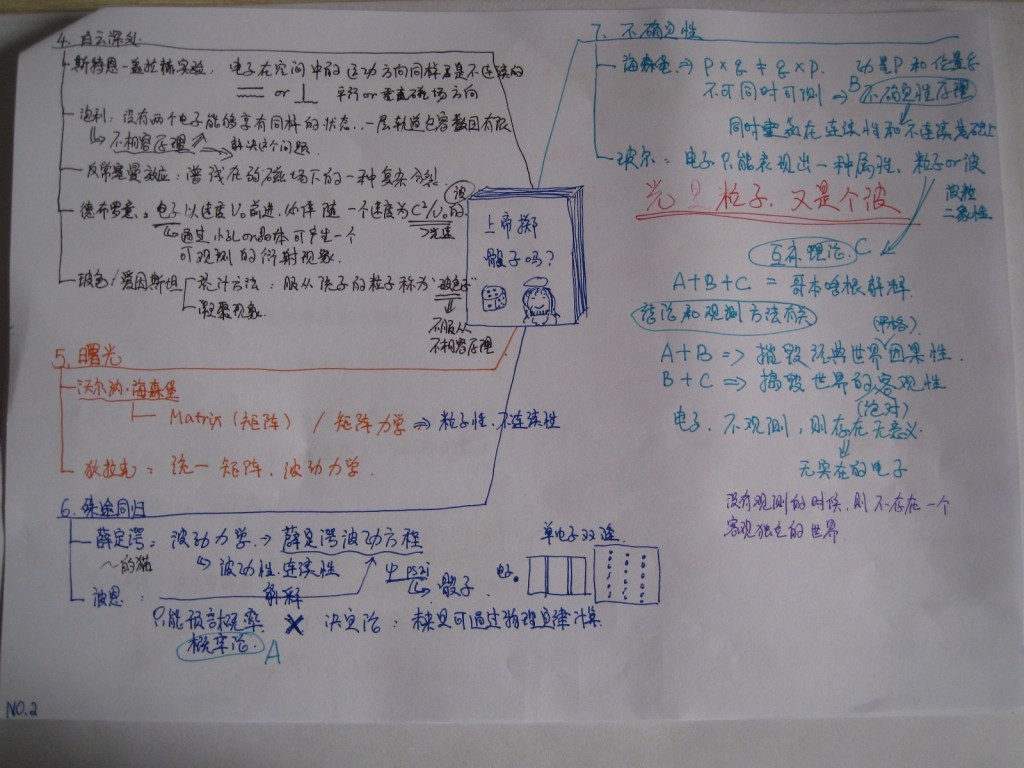 4. 白云深处
斯特恩-盖拉赫实验, 电子在空间中的运动方向同样是不连续的
= or ⊥ 平行or垂直磁场方向
泡利: 没有两个电子能够享有同样的状态.. 一层轨道包容数目有限
不相容原理 解决这个问题
反常塞曼效应: 谱线在弱磁场下的一种复杂分裂
德布罗意: 电子以速度V₀前进, 必伴随一个速度为C²/V₀的波
>光速
通过小孔or晶体可产生一个
可观测的衍射现象
玻色/爱因斯坦 统计方法: 服从 的粒子称为"玻色子"
凝聚现象
不服从
不相容原理
上帝掷
骰子吗?
5. 曙光
沃尔纳·海森堡
Matrix (矩阵) / 矩阵力学 ⇒ 粒子性, 不连续性
狄拉克: 统一矩阵, 波动力学.
6. 殊途同归
薛定谔: 波动力学 → 薛定谔波动方程
~的猫
波动性.连续性
ψ psai
骰子
波恩: 解释
只能预言概率 × 决定论: 可通过物理定律计算
概率论 A
单电子双缝
电子
7. 不确定性
海森堡 ⇒ p×q ≠ q×p. 动量P和位置q
不可同时可测 ⇒ B 不确定性原理
同时 在连续性和不连续 基础上
波尔: 电子只能表现出一种属性, 粒子or波
波粒
二象性
光 是 粒子, 又是个波
互补理论 C
A+B+C = 哥本哈根解释
结论和观测方法有关
(严格)
A+B ⇒ 摧毁经典世界因果性.
B+C ⇒ 摧毁世界的客观性
(绝对)
电子, 不观测, 则存在无意义.
无实在的电子
没有观测的时候, 则不存在一个
客观独立的世界
NO.2